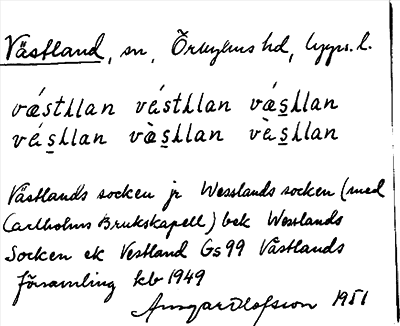 Västland, sn, Örbyhus hd, Upps. l.
vǽstıllan véstıllan vǽs̱ıllan
vés̱ıllan væ̀s̱ıllan vès̱ıllan
Västlands socken jr Wesslands socken (med
Carlholms Brukskapell) bek Wesslands
Socken ek Vestland Gs 99 Västlands
församling kb 1949
Ansgar Olofsson 1951